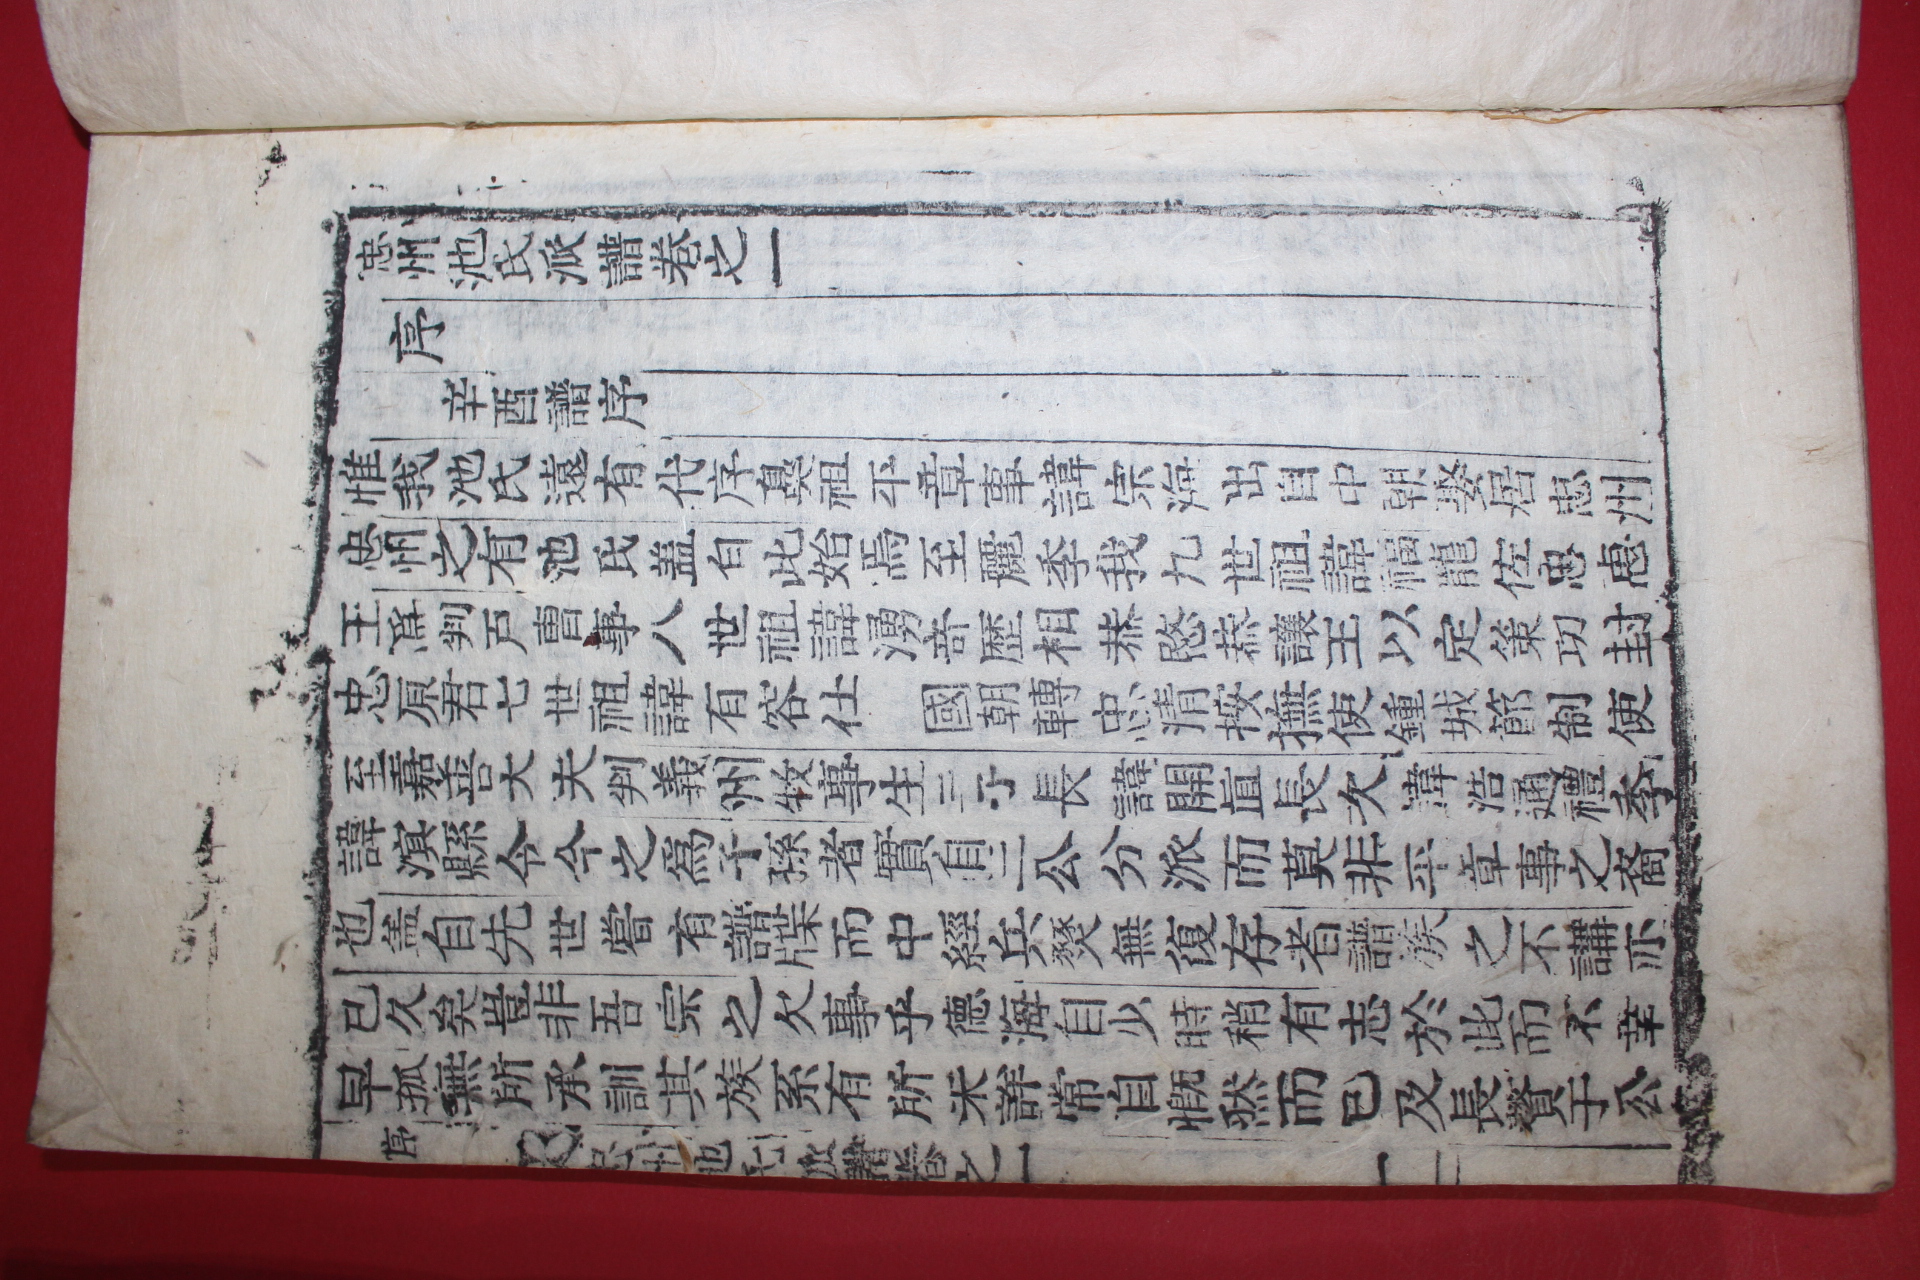 忠州池氏派譜卷之一
序
辛酉譜序
惟我池氏遠有代序鼻祖平章事諱宗海出自中朝娶居忠州
忠州之有池氏盖自此始焉至麗季我九世祖諱福龍佐忠惠
王爲判戶曹事八世祖諱湧奇歷相恭愍恭讓王以定策功封
忠原君七世祖諱有容仕 國朝轉忠淸按撫使鍾城節制使
至嘉善大夫判義州牧事生三子長諱開直長次諱浩通禮季
諱滇縣令今之爲子孫者實自三公分派而莫非平章事之裔
也盖自先世嘗有譜牒而中經兵燹無復存者譜族之不講亦
已久矣豈非吾宗之欠事乎德海自少時稍有志於此而不幸
早孤無所承訓其族系有所未詳常自慨然而已及長贅于公
序
忠州池氏派譜卷之一
一